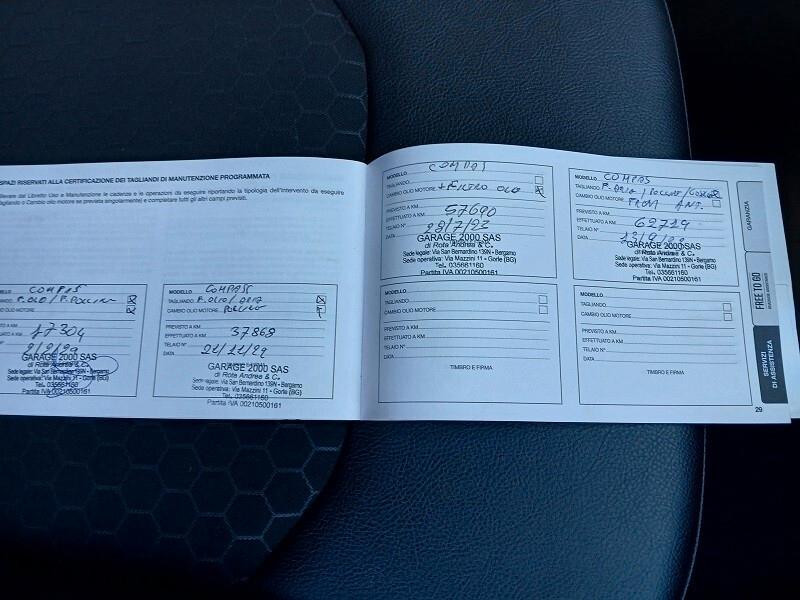 SPAZI RISERVATI ALLA CERTIFICAZIONE DEI TAGLIANDI DI MANUTENZIONE PROGRAMMATA
Rilevare dal Libretto Uso e Manutenzione le cadenze e le operazioni da eseguire riportando la tipologia dell'intervento da eseguire
(Tagliando o Cambio olio motore se prevista singolarmente) e completare tutti gli altri campi previsti.
COMPAS
F.OLIO/F.POLLINE
OLIO MOTORE
17304
GARAGE 2000 SAS
di Rota Andrea & C.
Sede legale: Via San Bernardino 139N - Bergamo
Sede operativa: Via Mazzini 11 - Gorle (BG)
Tel. 035661160
Partita IVA 00210500161
MODELLO COMPASS
TAGLIANDO F.OLIO/ARIA
CAMBIO OLIO MOTORE POLLINE
PREVISTO A KM
EFFETTUATO A KM 37869
TELAIO N°
DATA
GARAGE 2000 SAS
di Rota Andrea & C.
Sede legale: Via San Bernardino 139N - Bergamo
Sede operativa: Via Mazzini 11 - Gorle (BG)
Tel. 035661160
Partita IVA 00210500161
MODELLO
TAGLIANDO
CAMBIO OLIO MOTORE + FILTRO OLIO
PREVISTO A KM
EFFETTUATO A KM 57690
TELAIO N° 28/7/23
DATA
GARAGE 2000 SAS
di Rota Andrea & C.
Sede legale: Via San Bernardino 139N - Bergamo
Sede operativa: Via Mazzini 11 - Gorle (BG)
Tel. 035661160
Partita IVA 00210500161
MODELLO COMPAS
TAGLIANDO
CAMBIO OLIO MOTORE ANT.
PREVISTO A KM
EFFETTUATO A KM 62719
TELAIO N°
DATA
GARAGE 2000 SAS
di Rota Andrea & C.
Sede legale: Via San Bernardino 139N - Bergamo
Sede operativa: Via Mazzini 11 - Gorle (BG)
Tel. 035661160
Partita IVA 00210500161
MODELLO
TAGLIANDO
CAMBIO OLIO MOTORE
PREVISTO A KM
EFFETTUATO A KM
TELAIO N°
DATA
TIMBRO E FIRMA
MODELLO
TAGLIANDO
CAMBIO OLIO MOTORE
PREVISTO A KM
EFFETTUATO A KM
TELAIO N°
DATA
TIMBRO E FIRMA
GARANZIA
FREE TO GO
SERVIZI
DI ASSISTENZA
29